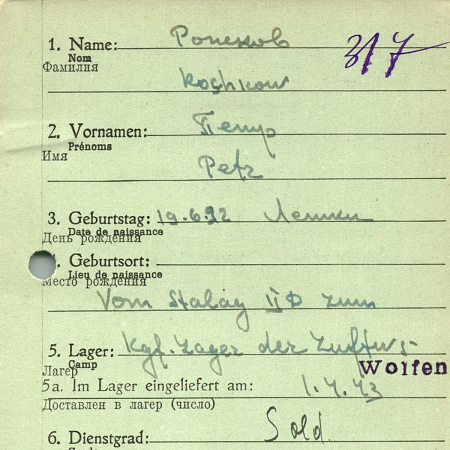 1. Name:
Nom
Фамилия
317
2. Vornamen: Петр
Prénoms
Имя
Petr
3. Geburtstag: 19.6.22
Date de naissance
День рождения
Geburtsort:
Lieu de naissance
Место рождения
Vom Stalag II D zum
5. Lager: Kgf. Lager der Luftw-
Camp
Лагер
Wolfen
5a. Im Lager eingeliefert am: 1.4.43
Доставлен в лагер (число)
6. Dienstgrad: Sold.